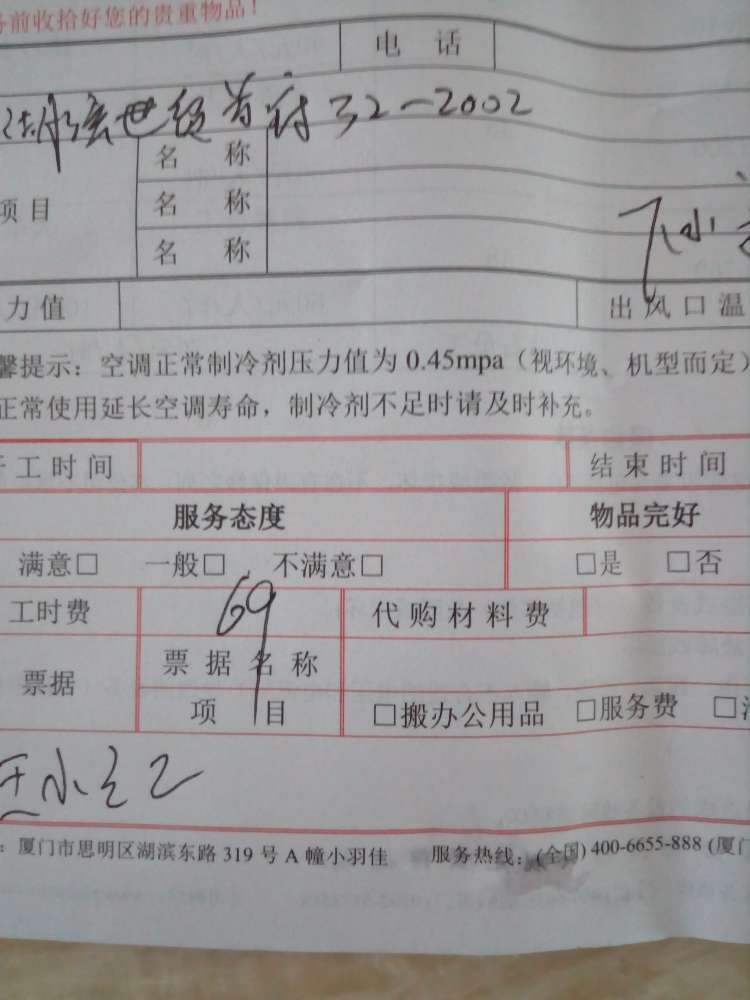 前收拾好您的贵重物品！
电 话
世贸首府 32-2002
名 称
项 目
名 称
名 称
力 值
出 风 口 温
馨提示：空调正常制冷剂压力值为 0.45mpa（视环境、机型而定）
正常使用延长空调寿命，制冷剂不足时请及时补充。
工 时 间
结 束 时 间
服务态度
物品完好
满意□ 一般□ 不满意□
□是 □否
工时费
69
代 购 材 料 费
票据
票 据 名 称
项 目
□搬办公用品 □服务费 □
小
：厦门市思明区湖滨东路 319 号 A 幢小羽佳 服务热线：(全国) 400-6655-888 (厦门